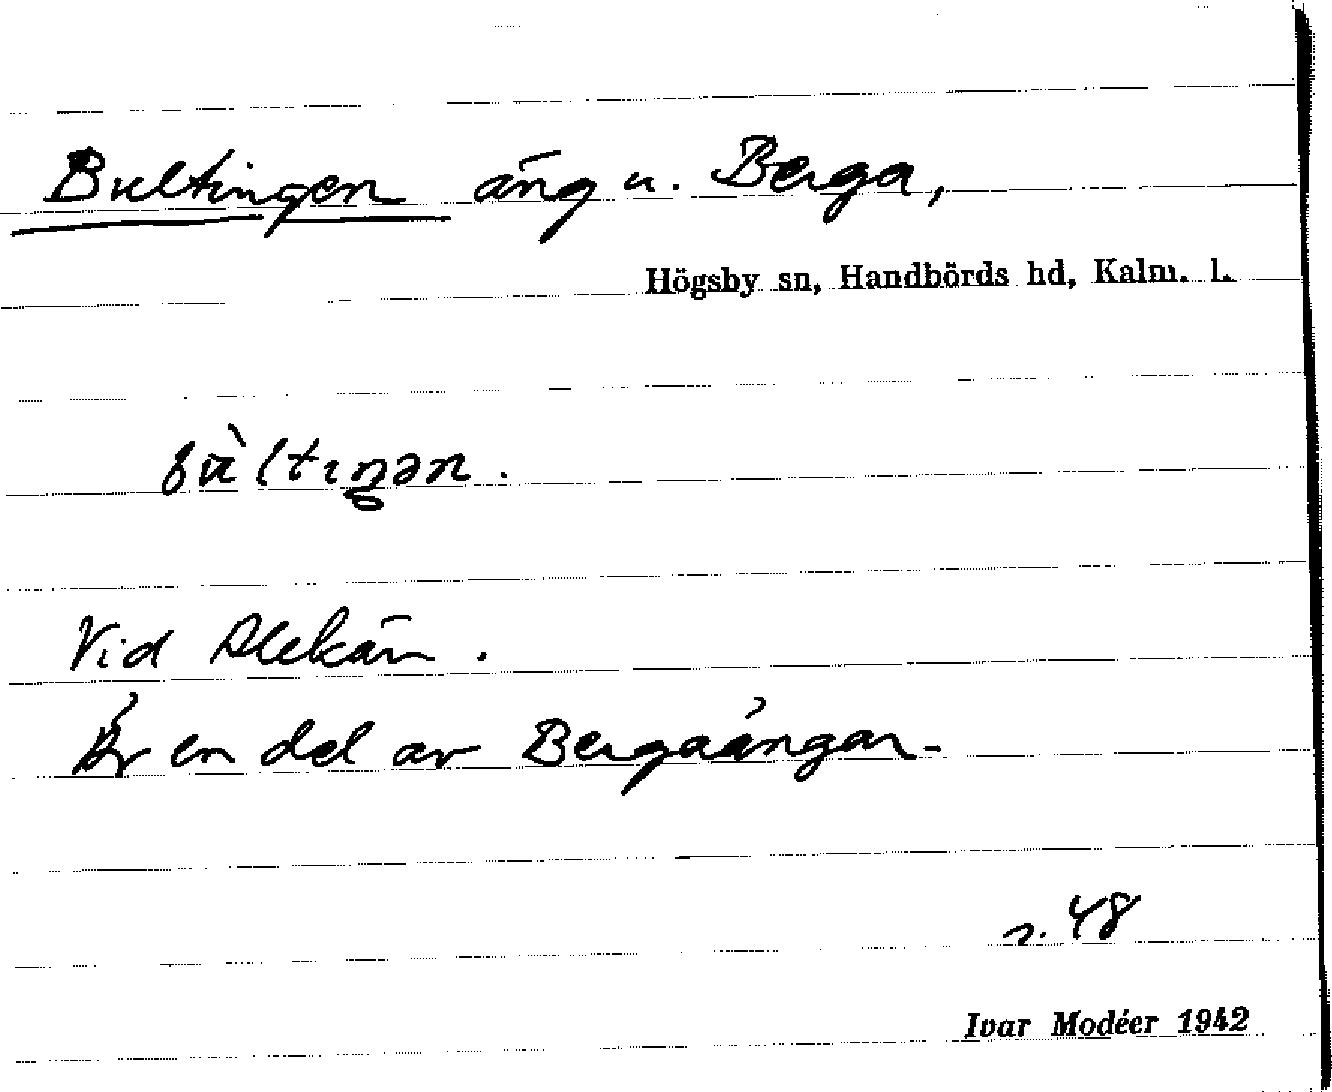 Bultingen äng u. Berga,
Högsby sn, Handbörds hd, Kalm. l.
bùltıŋən.
Vid Alekärr.
Är en del av Bergaängar.
s. 48
Ivar Modéer 1942